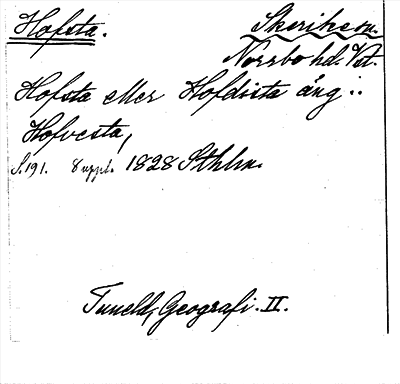 Hofsta.
Skerikes sn.
Norrbo hd. Vst.
Hofsta eller Hofdesta äng:
Hofvesta,
S. 191. 8 uppl. 1828 Sthlm.
Tuneld, Geografi. II.